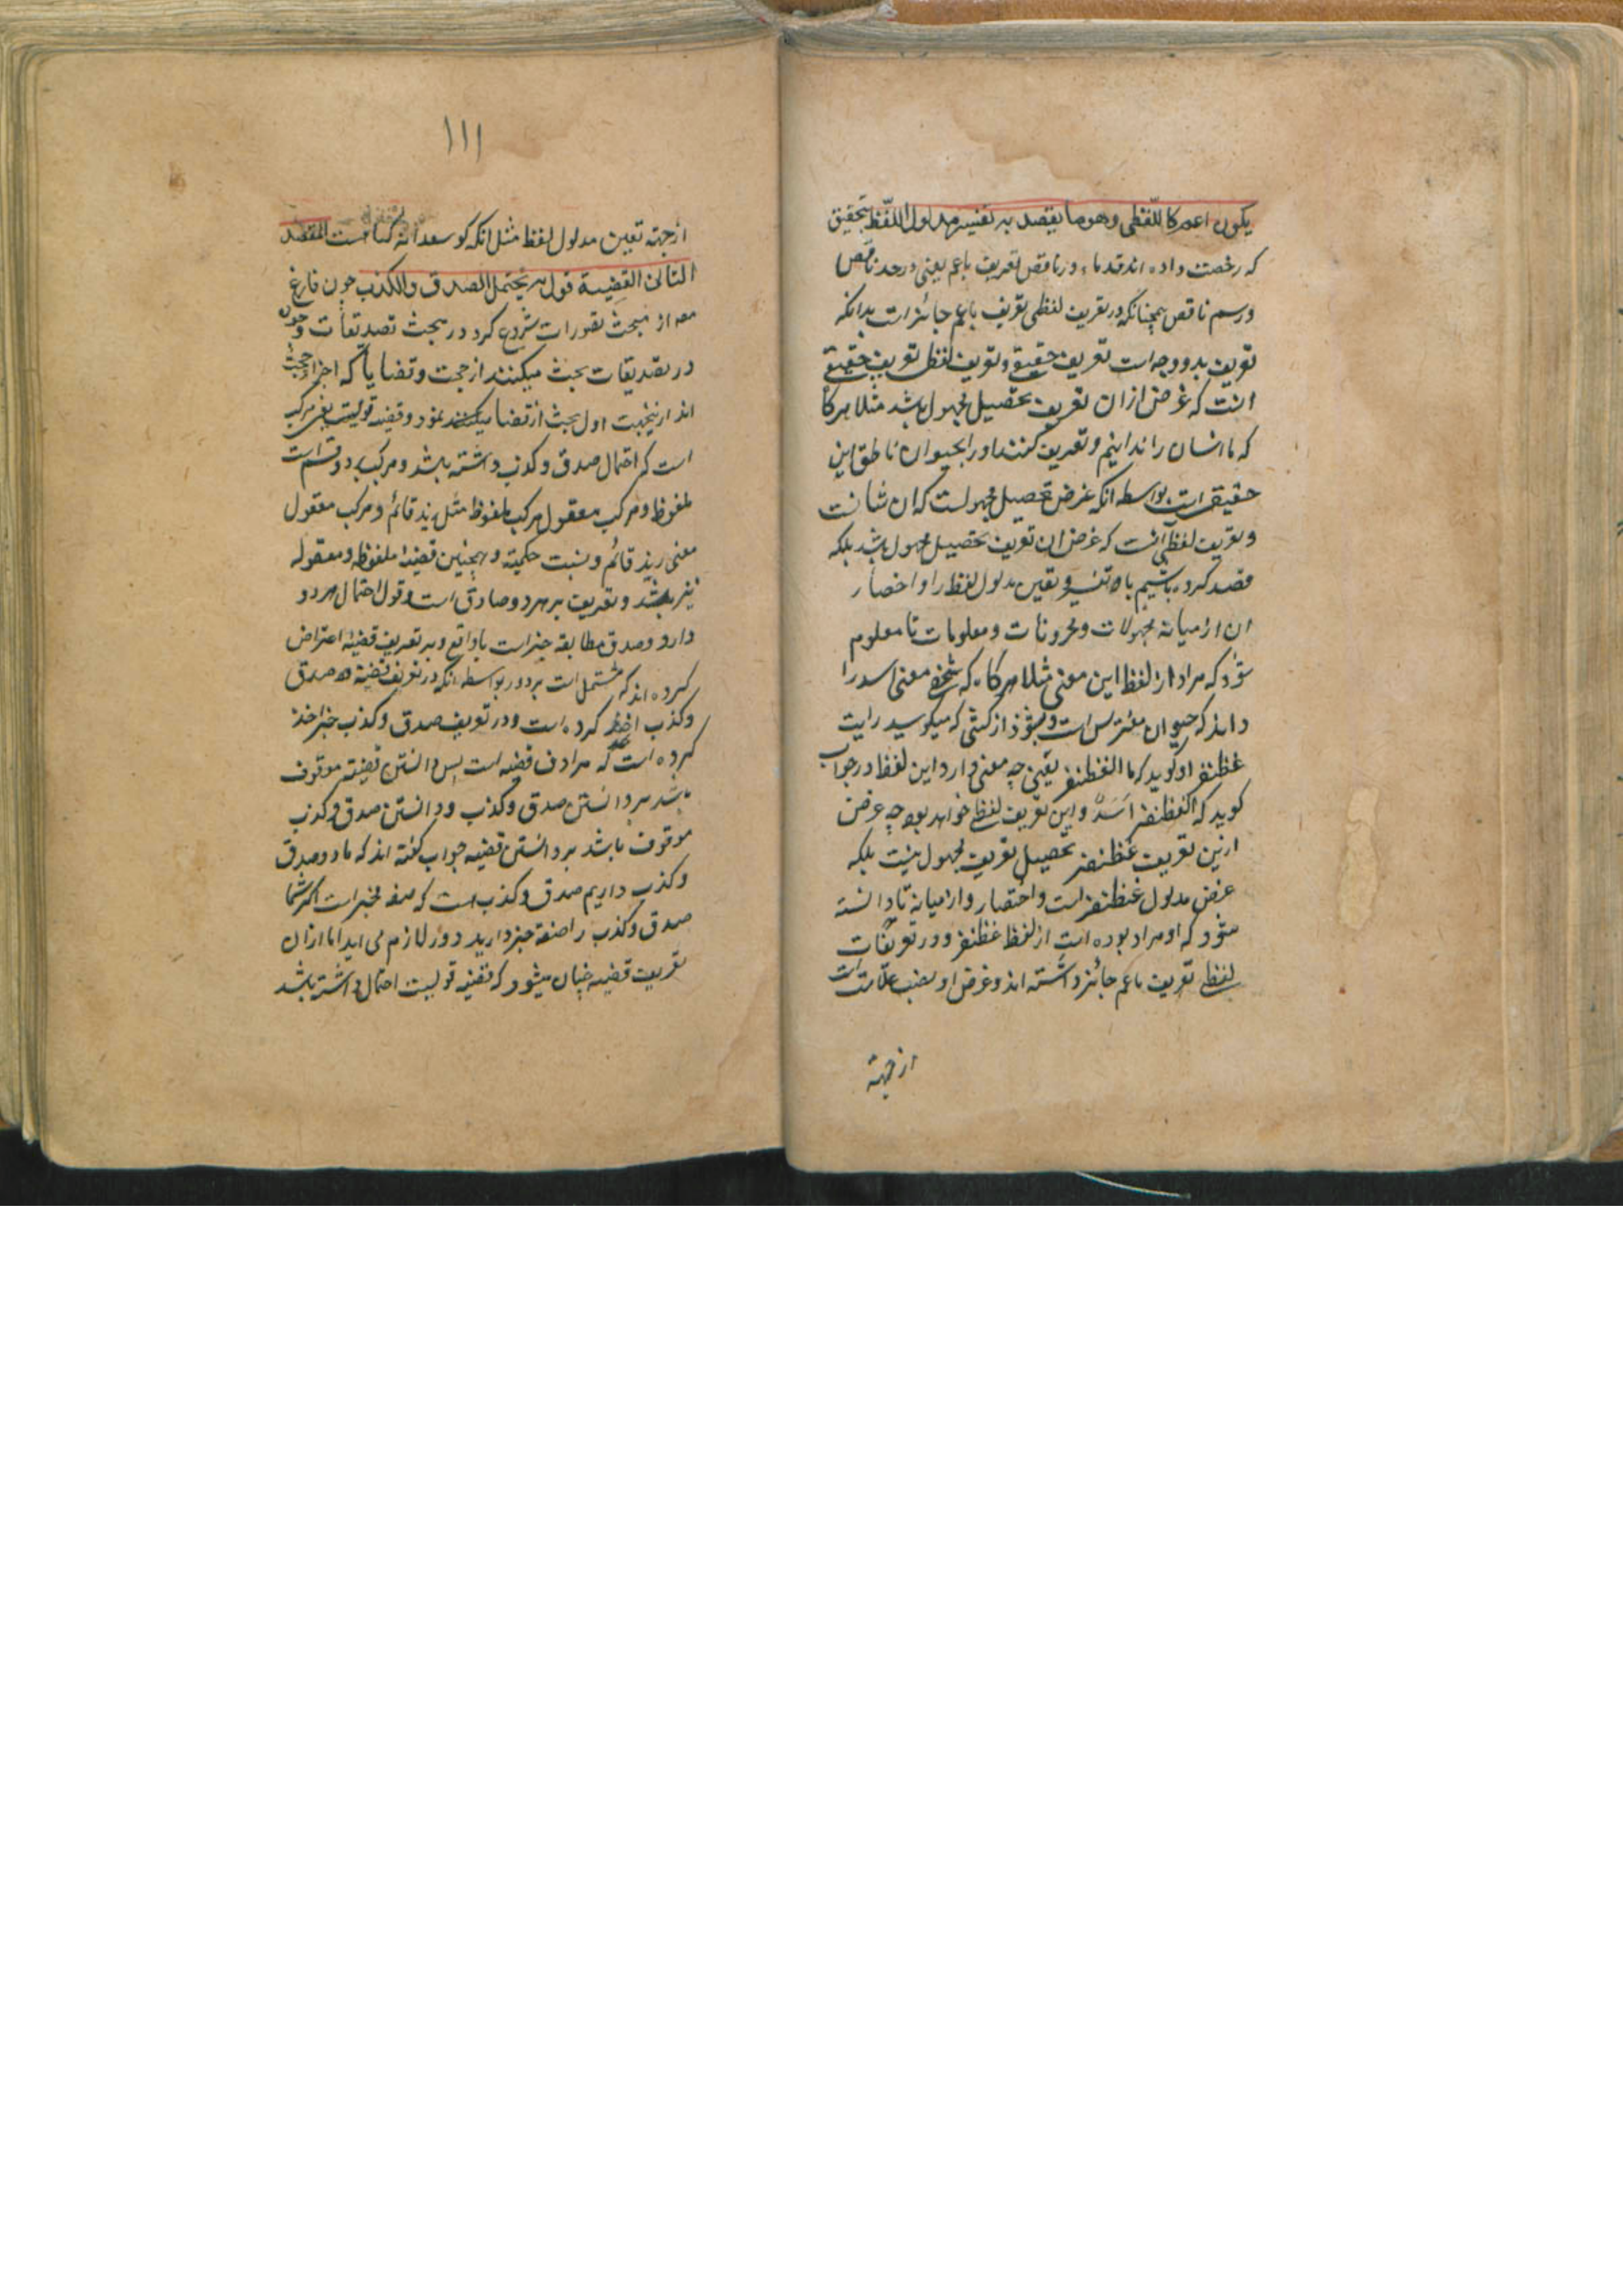 یکون اعم کاللّفظی وهو ما یقصد به تفسیر مدلول اللّفظ بتحقیق
که رخصت داده اند قدماء در ناقص تعریف باعم یعنی در حد ناقص
و رسم ناقص همچنانکه در تعریف لفظی تعریف باعم جائز است بدانکه
تعریف بدو وجه است تعریف حقیقی و تعریف لفظی تعریف حقیقی
انست که غرض از ان تعریف تحصیل مجهول باشد مثلا هرکا
که ما انسان را ندانیم و تعریف کنند اورا بحیوان ناطق این
حقیقی است بواسطه انکه غرض تحصیل مجهولست که ان شانست
و تعریف لفظی انست که غرض ان تعریف تحصیل مجهول باشد بلکه
قصد کرده باشیم باو تفسیر و تعین مدلول لفظ را و احضار
ان از میانه مجهولات و مخزونات و معلومات تا معلوم
شود که مراد از لفظ این معنی مثلا هرکاه که شخصی معنی اسد را
داند که حیوان مفترس است و بشنود از کسی که میکوید رایت
غظنفر او کوید که ما الغظنفر یعنی چه معنی دارد این لفظ در جواب
کوید که الغظنفر اَسَدٌ و این تعریف لفظی خواهد بود چه غرض
ازین تعریف غظنفر تحصیل تعریف مجهول نیست بلکه
غرض مدلول غظنفر است و احتضار و از میانه تا دانسته
شود که او مراد بوده است از لفظ غظنفر و در تعریفات
لفظی تعریف باعم جائز داشته اند و غرض او نصب علامت است
از جهة
۱۱۱
از جهة تعین مدلول لفظ مثل انکه کو سعدانه کیاهست المقصد
الثانی القضیة قول یحتمل الصدق والکذب چون فارغ
مص از مبحث تصورات شروع کرد در مبحث تصدیقات و چون
در تصدیقات بحث میکنند از حجت و قضایا که اجزا حجت
اند ازینجهت اول بحث از قضا نمود و قضیه قولیست یعنی مرکب
است که احتمال صدق و کذب داشته باشد و مرکب بر دو قسم است
ملفوظ و مرکب معقول مرکب ملفوظ مثل زید قائم و مرکب معقول
معنی زید قائم و نسبت حکمیة و همچنین قضیه ملفوظه و معقوله
نیز باشد و تعریف بر هردو صادق است و قول احتمال هردو
دارد و صدق مطابقه خبر است با واقع و بر تعریف قضیه اعتراض
کرده اند که مشتمل است بر دور بواسطه انکه در تعریف قضیه صدق
و کذب اخذ کرده است و در تعریف صدق و کذب خبر اخذ
کرده است که مرادف قضیه است پس دانستن قضیه موقوف
باشد بر دانستن صدق و کذب و دانستن صدق و کذب
موقوف باشد بر دانستن قضیه جواب کفته اند که ما دو صدق
و کذب داریم صدق و کذب است که صفه مخبر است اکر شما
صدق و کذب را صفة خبر دارید دور لازم می اید اما از ان
تعریف قضیه چنان میشود که قضیه قولیست احتمال داشته باشد